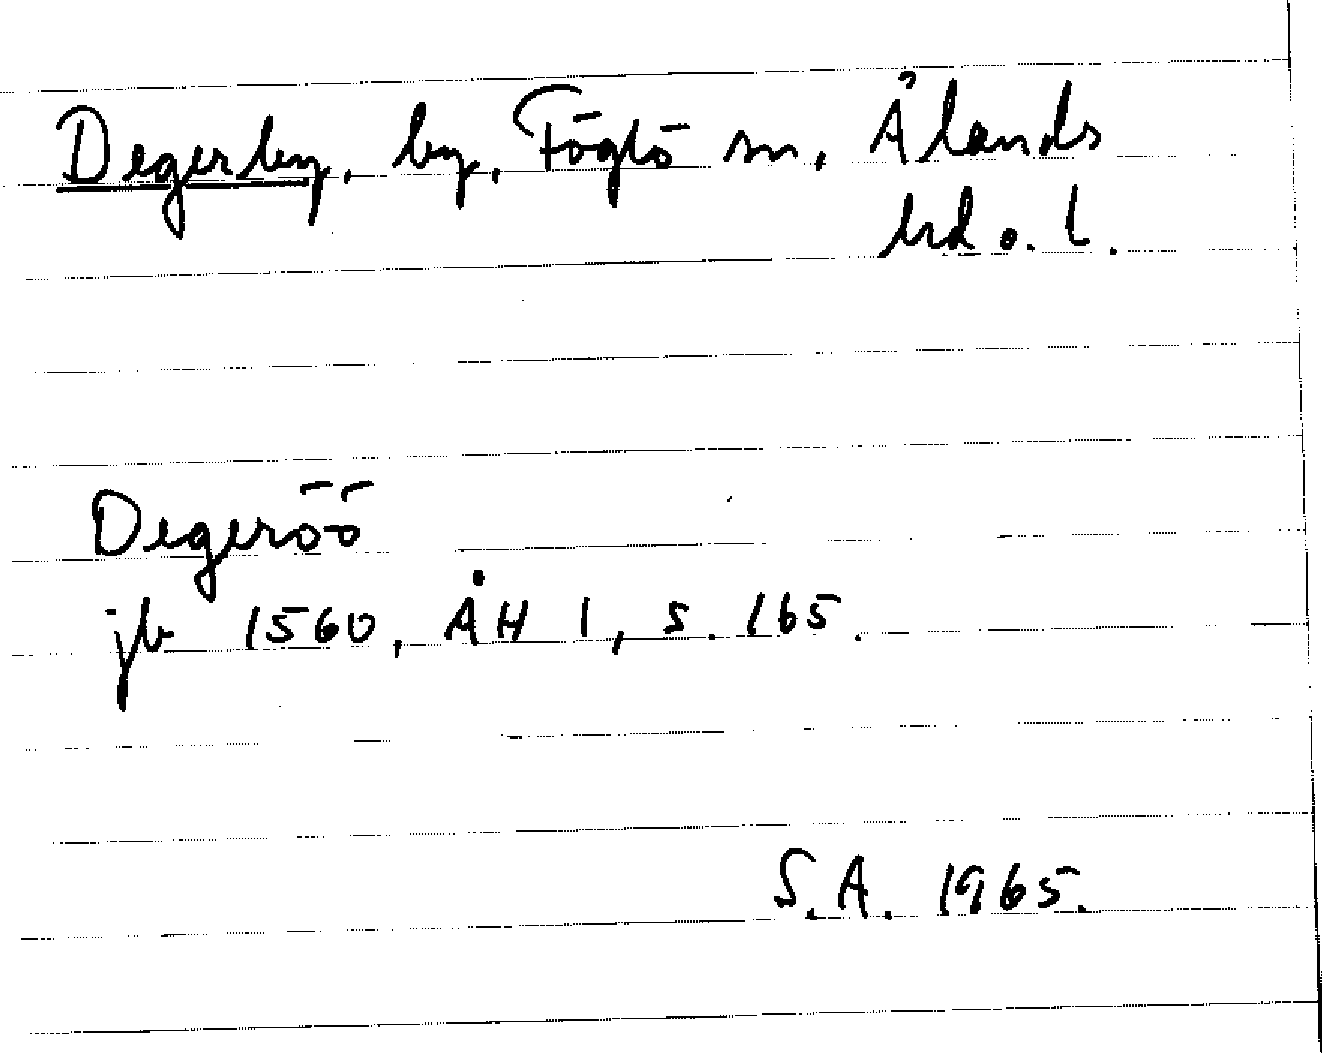 Degerby, by, Föglö sn, Ålands
hd o. l.
Degeröö
jb 1560, ÅH 1, s. 165.
S.A. 1965.